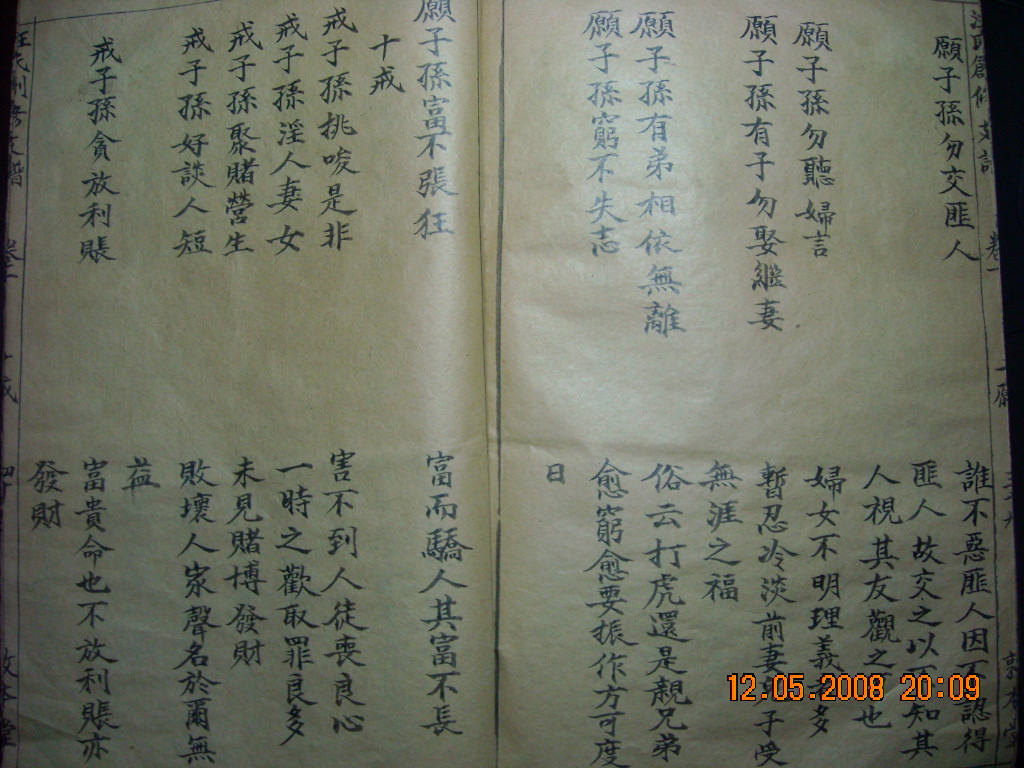 願子孫勿交匪人
誰不惡匪人因不認得
匪人故交之以不知其
人視其友觀之可也
願子孫勿聽婦言
婦女不明理義者多
願子孫有子勿娶繼妻
暫忍冷淡前妻之子受
無涯之福
願子孫有弟相依無離
俗云打虎還是親兄弟
願子孫窮不失志
愈窮愈要振作方可度
日
願子孫富不張狂
富而驕人其富不長
十戒
戒子孫挑唆是非
害不到人徒喪良心
戒子孫淫人妻女
一時之歡取罪良多
戒子孫聚賭營生
未見賭博發財
戒子孫好談人短
敗壞人家聲名於爾無
益
戒子孫貪放利賬
富貴命也不放利賬亦
發財
12.05.2008 20:09